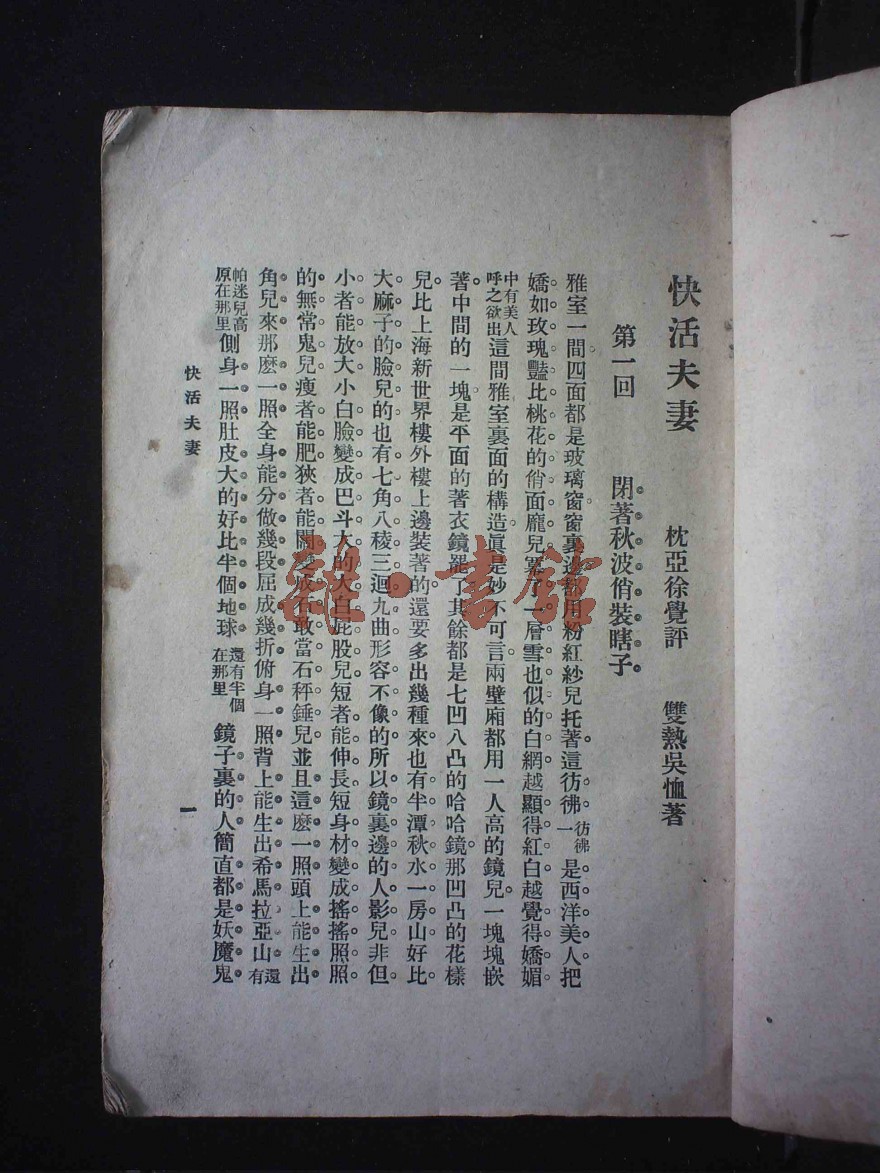 快活夫妻
枕亞徐覺評　雙熱吳恤著
第一回　閉著秋波俏裝瞎子
雅室一間四面都是玻璃窗窗裏邊都用粉紅紗兒托著這彷彿彷彿一是西洋美人把
嬌如玫瑰豔比桃花的俏面龐兒冪了一層雪也似的白網越顯得紅白越覺得嬌媚
中有美人呼之欲出這間雅室裏面的構造眞是妙不可言兩壁廂都用一人高的鏡兒一塊塊嵌
著中間的一塊是平面的著衣鏡罷了其餘都是七凹八凸的哈哈鏡那凹凸的花樣
兒比上海新世界樓外樓上邊裝著的還要多出幾種來也有半潭秋水一房山好比
大麻子的臉兒的也有七角八稜三迴九曲形容不像的所以鏡裏邊的人影兒非但
小者能放大小白臉變成巴斗大的大白屁股兒短者能伸長短身材變成搖搖照照
的無常鬼兒瘦者能肥狹者能闊變成石敢當石秤錘兒並且這麼一照頭上能生出
角兒來那麼一照全身能分做幾段屈成幾折俯身一照背上能生出希馬拉亞山還有
帕迷兒高原在那里側身一照肚皮大的好比半個地球還有半個在那里鏡子裏的人簡直都是妖魔鬼
快活夫妻
一
雜·書館